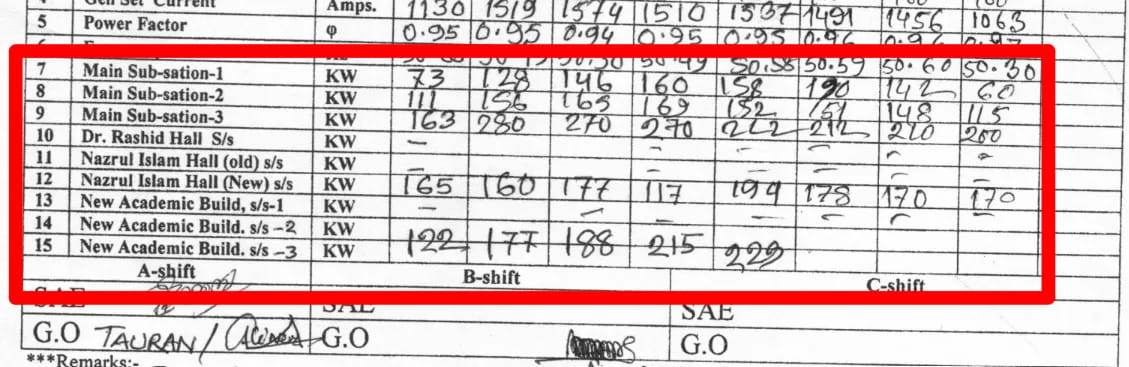 Gen Set Current Amps. 1130 1519 1574 1510 1537 1491 1456 1063
5 Power Factor φ 0.95 0.95 0.94 0.95 0.95 0.96 0.96 0.97
7 Main Sub-sation-1 KW 73 128 146 160 158 190 142 60
8 Main Sub-sation-2 KW 111 156 165 169 152 151 148 115
9 Main Sub-sation-3 KW 163 280 270 270 222 212 210 200
10 Dr. Rashid Hall S/s KW – – – – –
11 Nazrul Islam Hall (old) s/s KW – – – – –
12 Nazrul Islam Hall (New) s/s KW 165 160 177 117 194 178 170 170
13 New Academic Build, s/s-1 KW – – – – – – –
14 New Academic Build. s/s –2 KW
15 New Academic Build. s/s –3 KW 122 177 188 215 229
A-shift B-shift C-shift
SAE SAE SAE
G.O TAURAN / G.O G.O
***Remarks:-